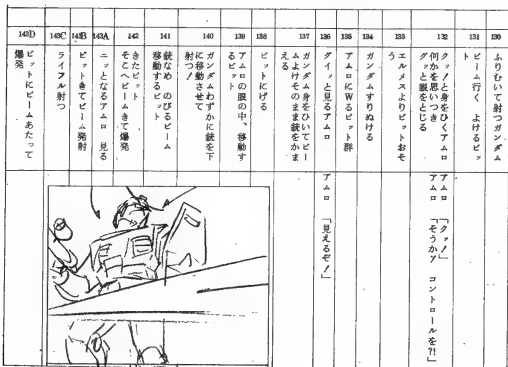 130
ふりむいて射つガンダム
131
ビーム行く よけるビッ
ト
132
クッ!と身をひくアムロ
何かを思いつき
グッと眼をとじる
アムロ 「クッ!」
アムロ 「そうか? コントロールを?!」
133
エルメスよりビットおそ
う
134
ガンダムすりぬける
135
アムロにWるビット群
136
グイッと見るアムロ
アムロ 「見えるぞ!」
137
ガンダム身をひいてビー
ムよけそのまま銃をかま
える
138
ビットにげる
139
アムロの眼の中、移動す
るビット
140
ガンダムわずかに銃を下
に移動させて
射つ!
141
銃なめ のびるビーム
移動するビット
142
きたビット
そこへビームきて爆発
143A
ニッとなるアムロ 見る
143B
ビットきてビーム発射
143C
ライフル射つ
143D
ビットにビームあたって
爆発